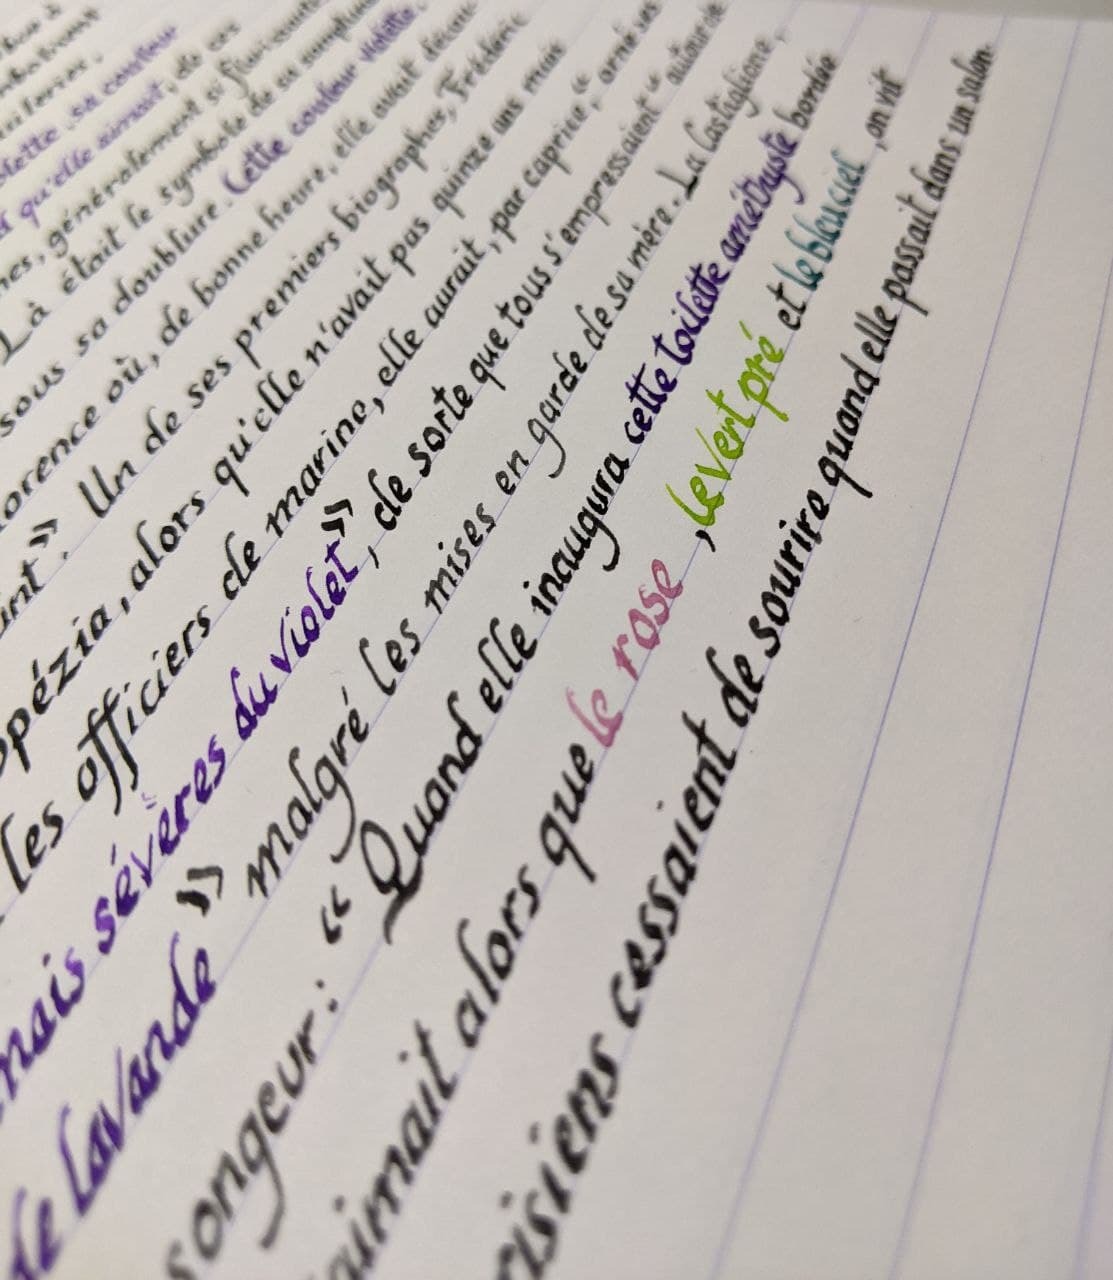 lette, sa couleur
qu'elle aimait, de ces
nes, généralement si
Là était le symbole de sa somptueu
sous sa doublure. Cette couleur violette,
orence où, de bonne heure, elle avait
int ». Un de ses premiers biographes, Frédéric
pézia, alors qu'elle n'avait pas quinze ans mais
les officiers de marine, elle aurait, par caprice, "orné ses
mais sévères du violet », de sorte que tous s'empressaient " autour de
de lavande » malgré les mises en garde de sa mère. La Castiglione,
songeur : " Quand elle inaugura cette toilette améthyste bordée
aimait alors que le rose , le vert pré et le bleu ciel , on vit
risiens cessaient de sourire quand elle passait dans un salon.